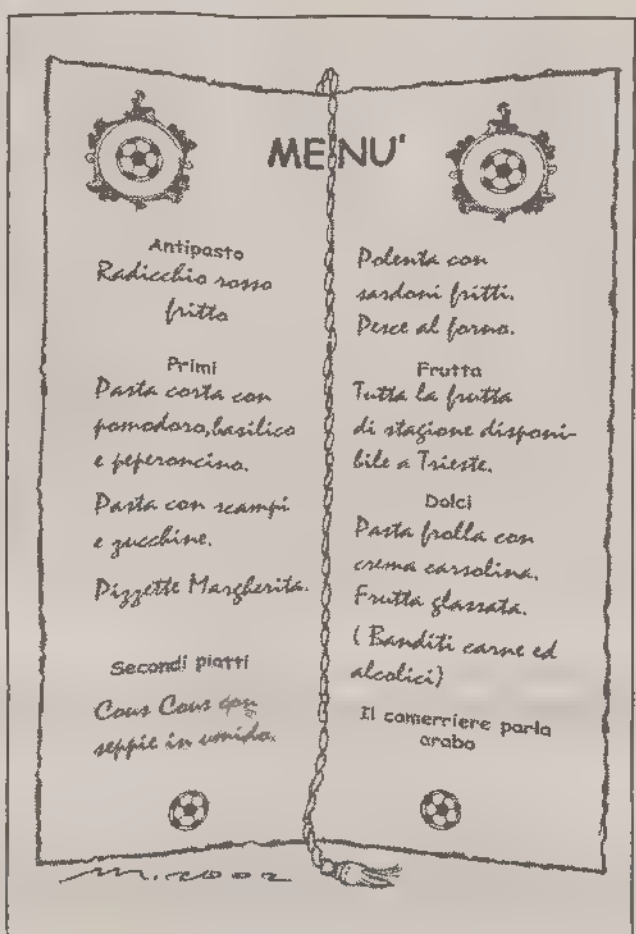 MENU'
Antipasto
Radicchio rosso
fritto
Primi
Pasta corta con
pomodoro, basilico
e peperoncino.
Pasta con scampi
e zucchine.
Pizzette Margherita.
Secondi piatti
Cous Cous con
seppie in umido.
Polenta con
sardoni fritti.
Pesce al forno.
Frutta
Tutta la frutta
di stagione disponi-
bile a Trieste.
Dolci
Pasta frolla con
crema carsolina.
Frutta glassata.
( Banditi carne ed
alcolici)
Il camerriere parla
arabo